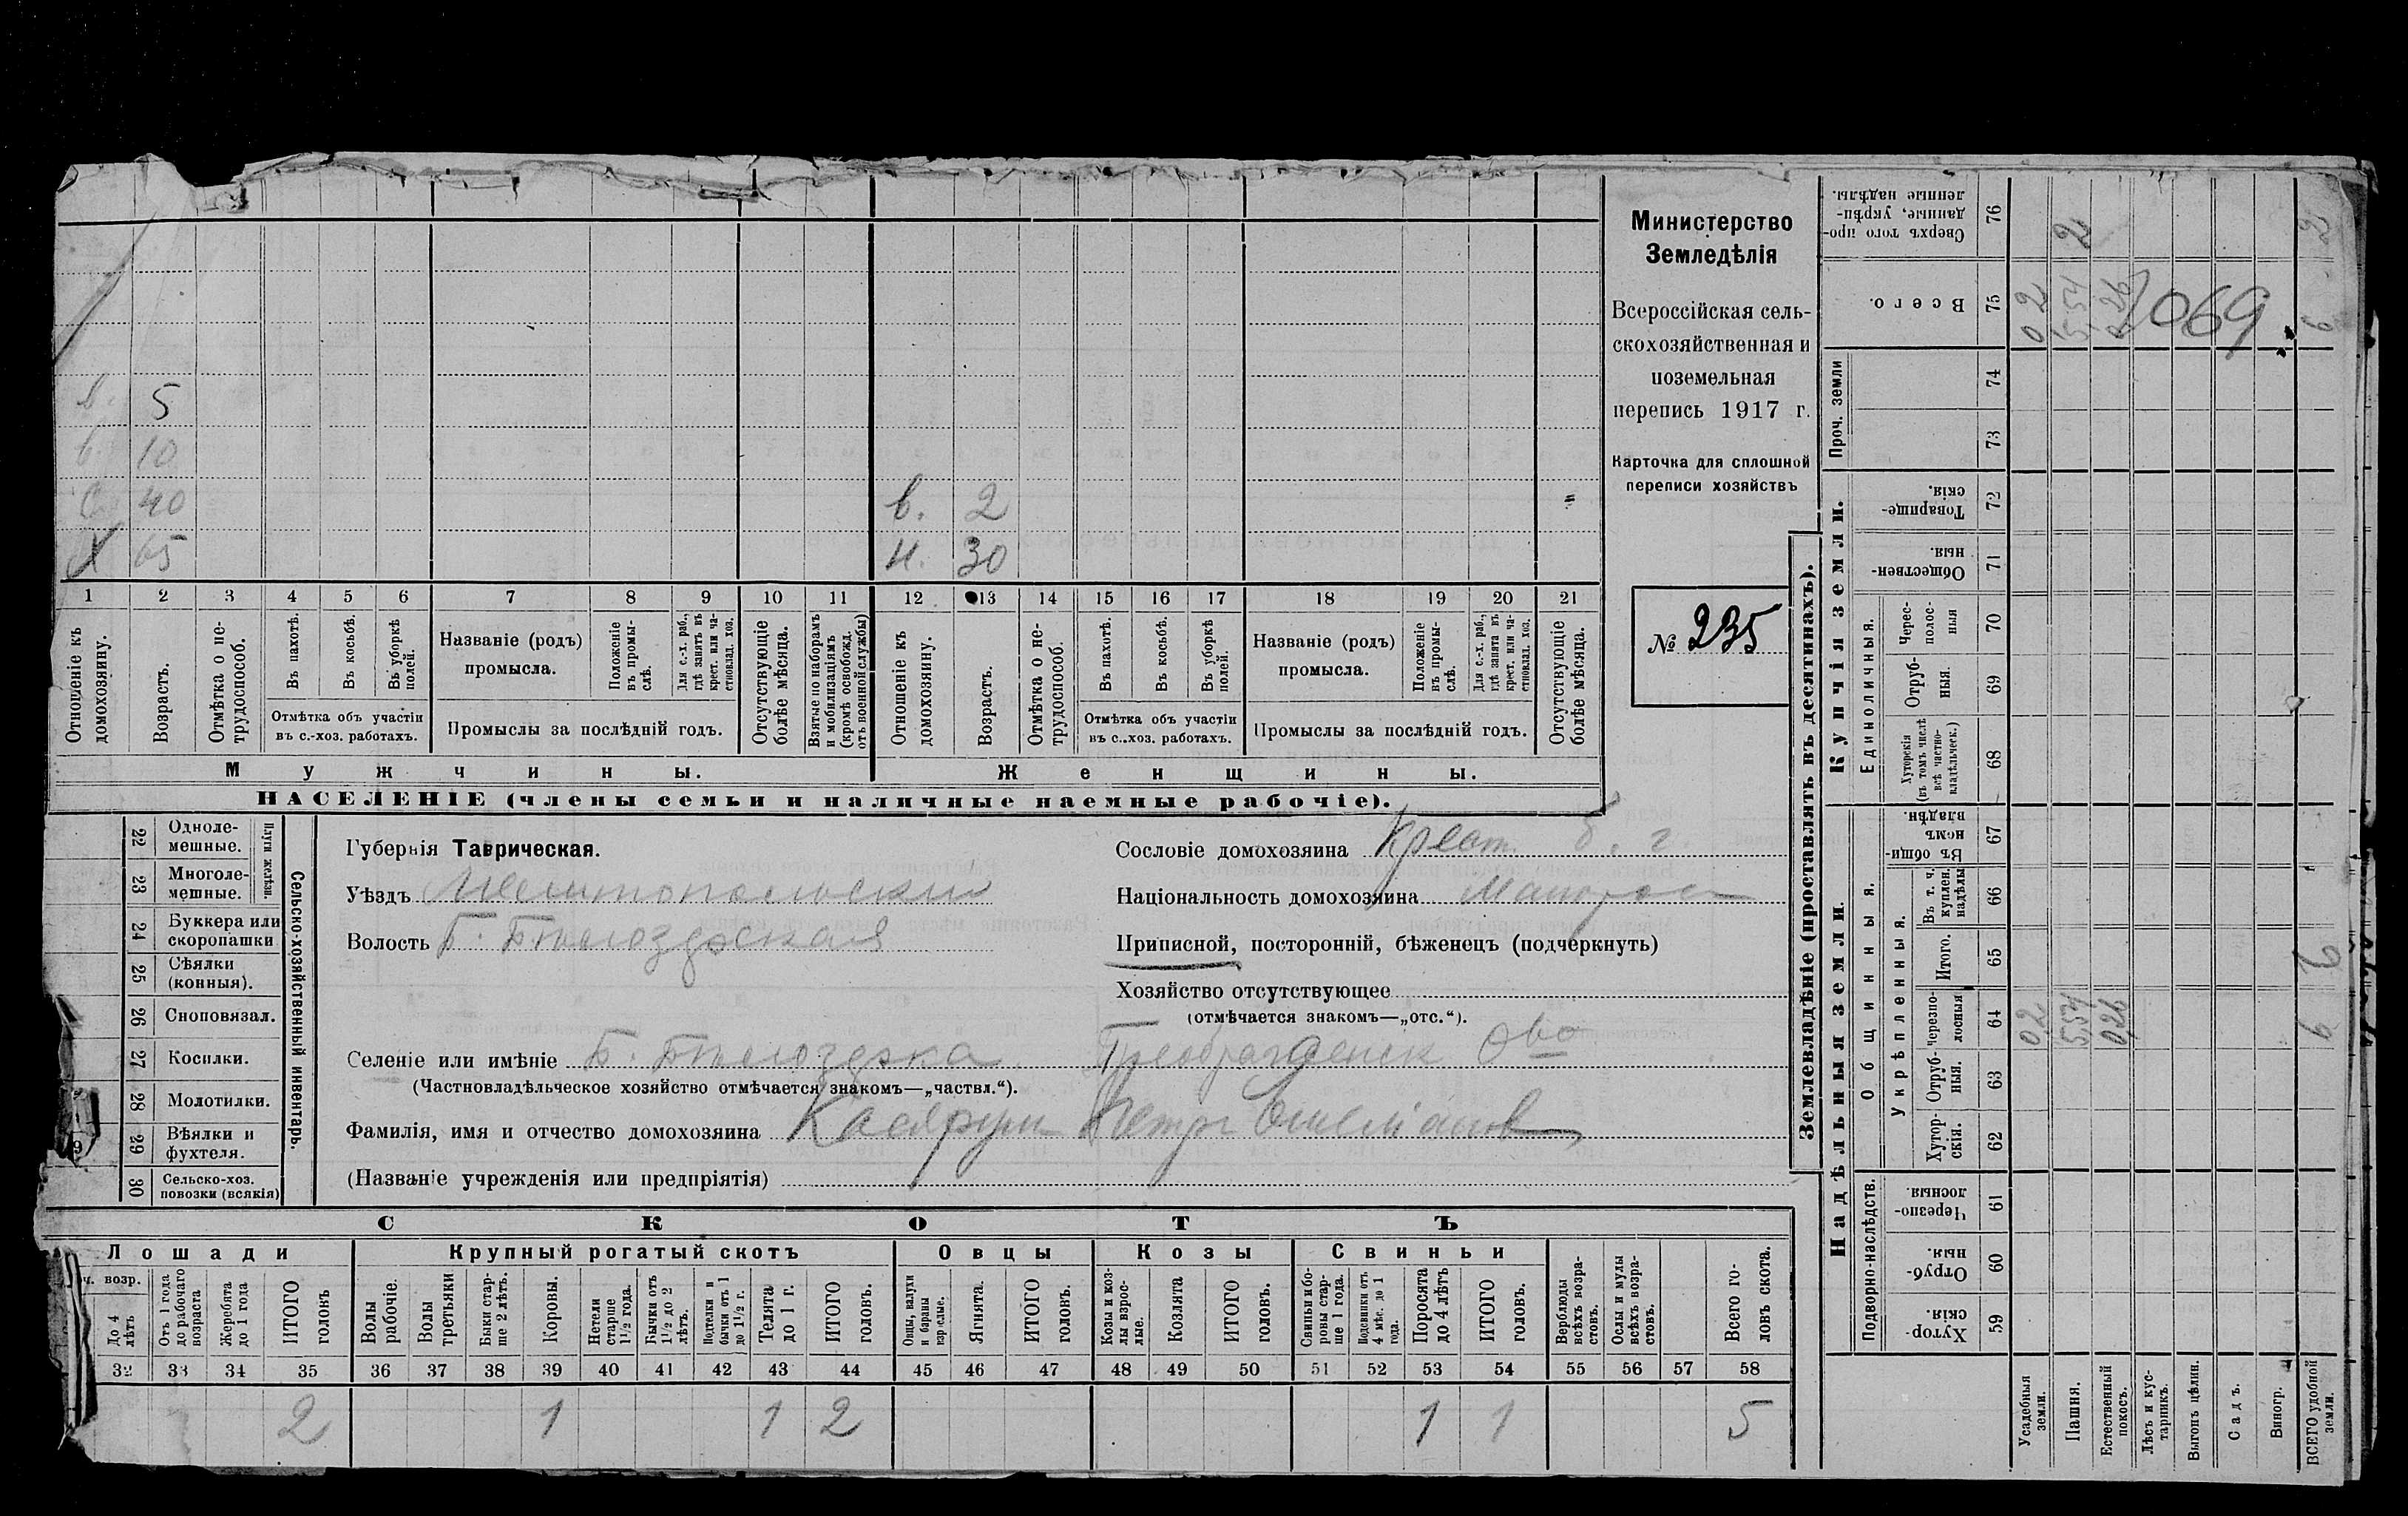 Министерство
Земледѣлія
Всероссійская сель-
скохозяйственная и
поземельная
перепись 1917 г.
Карточка для сплошной
переписи хозяйствъ
№ 235
в. 5
в. 10
с. 40
Х 65
в. 2
н. 30
1 2 3 4 5 6 7 8 9 10 11 12 13 14 15 16 17 18 19 20 21
Отношеніе къ домохозяину.
Возрастъ.
Отмѣтка о не-трудоспособ.
Въ пахотѣ.
Въ косьбѣ.
Въ уборкѣ полей.
Отмѣтка объ участіи
въ с.-хоз. работахъ.
Названіе (родъ)
промысла.
Положеніе въ промы-слѣ.
Для с.-х. раб., гдѣ занятъ въ крест. или ча-стновлад. хоз.
Промыслы за послѣдній годъ.
Отсутствующіе болѣе мѣсяца.
Взятые по наборамъ и мобилизаціямъ (кромѣ освобожд. отъ военной службы)
Отношеніе къ домохозяину.
Возрастъ.
Отмѣтка о не-трудоспособ.
Въ пахотѣ.
Въ косьбѣ.
Въ уборкѣ полей.
Отмѣтка объ участіи
въ с.-хоз. работахъ.
Названіе (родъ)
промысла.
Положеніе въ промы-слѣ.
Для с.-х. раб., гдѣ занята въ крест. или ча-стновлад. хоз.
Промыслы за послѣдній годъ.
Отсутствующіе болѣе мѣсяца.
Мужчины. Женщины.
НАСЕЛЕНІЕ (члены семьи и наличные наемные рабочіе).
Сельско-хозяйственный инвентарь.
Плуги желѣзн.
22 Одноле-мешные.
23 Многоле-мешные.
24 Буккера или скоропашки
25 Сѣялки (конныя).
26 Сноповязал.
27 Косилки.
28 Молотилки.
29 Вѣялки и фухтеля.
30 Сельско-хоз. повозки (всякія)
Губернія Таврическая.
Уѣздъ Мелитопольскій
Волость Б. Бѣлозерская
Селеніе или имѣніе Б. Бѣлозерка Преображенск О-во
(Частновладѣльческое хозяйство отмѣчается знакомъ—„частвл.“).
Фамилія, имя и отчество домохозяина Петръ
(Названіе учрежденія или предпріятія)
Сословіе домохозяина Крест.
Національность домохозяина Малорос
Приписной, посторонній, бѣженецъ (подчеркнуть)
Хозяйство отсутствующее
(отмѣчается знакомъ—„отс.“).
СКОТЪ
Лошади Крупный рогатый скотъ Овцы Козы Свиньи
ч. возр.
До 4 лѣтъ
Отъ 1 года до рабочаго возраста
Жеребята до 1 года
ИТОГО головъ
Волы рабочіе.
Волы третьяки
Быки стар-ше 2 лѣтъ.
Коровы.
Нетели старше 1½ года.
Бычки отъ 1½ до 2 лѣтъ.
Подтелки и бычки отъ 1 до 1½ г.
Телята до 1 г.
ИТОГО головъ.
Овцы, валухи и бараны взрослые.
Ягнята.
ИТОГО головъ.
Козы и коз-лы взрос-лые.
Козлята
ИТОГО головъ.
Свиньи и бо-ровы стар-ше 1 года.
Подсвинки отъ 4 мѣс. до 1 года.
Поросята до 4 лѣтъ
ИТОГО головъ.
Верблюды всѣхъ возра-стовъ.
Ослы и мулы всѣхъ возра-стовъ.
Всего го-ловъ скота.
32 33 34 35 36 37 38 39 40 41 42 43 44 45 46 47 48 49 50 51 52 53 54 55 56 57 58
2 1 1 2 1 1 5
Землевладѣніе (проставлять въ десятинахъ).
Надѣльныя земли. Купчія земли. Проч. земли
Подворно-наслѣдств.
Общинныя.
Укрѣпленныя.
Единоличныя.
59 Хутор-скія.
60 Отруб-ныя.
61 Черезпо-лосныя.
62 Хутор-скія.
63 Отруб-ныя.
64 Черезпо-лосныя
65 Итого.
66 Въ т. ч. куплен. надѣлы
67 Въ общи-номъ владѣн.
68 Хуторскія (въ томъ числѣ всѣ частно-владѣльческ.)
69 Отруб-ныя
70 Черес-полос-ныя
71 Обществен-ныя.
72 Товарище-скія.
73
74
75 Всего.
76 Сверхъ того про-данные, укрѣп-ленные надѣлы.
Усадебныя земли. 02 02
Пашня. 5,54 5,54 2
Естественный покосъ. 0,26 0,26
Лѣсъ и кус-тарникъ.
Выгонъ цѣлин.
Садъ.
Виногр.
ВСЕГО удобной земли. 6 6 2
1069